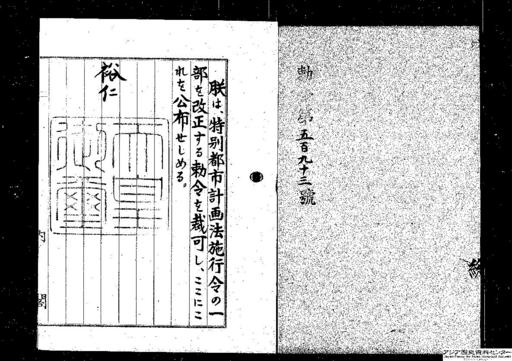 勅令第五百九十三號
朕は、特別都市計画法施行令の一
部を改正する勅令を裁可し、ここにこ
れを公布せしめる。
裕仁
内閣
アジア歴史資料センター